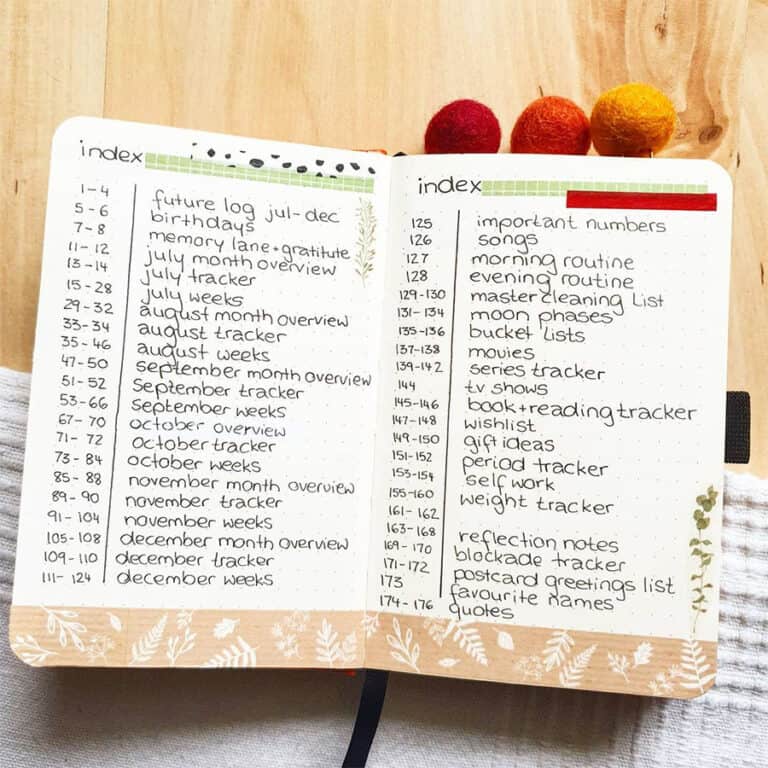 index
1-4 future log jul-dec
5-6 birthdays
7-8 memory lane+gratitute
11-12 july month overview
13-14 july tracker
15-28 july weeks
29-32 august month overview
33-34 august tracker
35-46 august weeks
47-50 september month overview
51-52 september tracker
53-66 september weeks
67-70 october overview
71-72 october tracker
73-84 october weeks
85-88 november month overview
89-90 november tracker
91-104 november weeks
105-108 december month overview
109-110 december tracker
111-124 december weeks
index
125 important numbers
126 songs
127 morning routine
128 evening routine
129-130 master cleaning list
131-134 moon phases
135-136 bucket lists
137-138 movies
139-142 series tracker
144 tv shows
145-146 book+reading tracker
147-148 wishlist
149-150 gift ideas
151-152 period tracker
153-154 self work
155-160 weight tracker
161-162
163-168 reflection notes
169-170 blockade tracker
171-172 postcard greetings list
173 favourite names
174-176 quotes